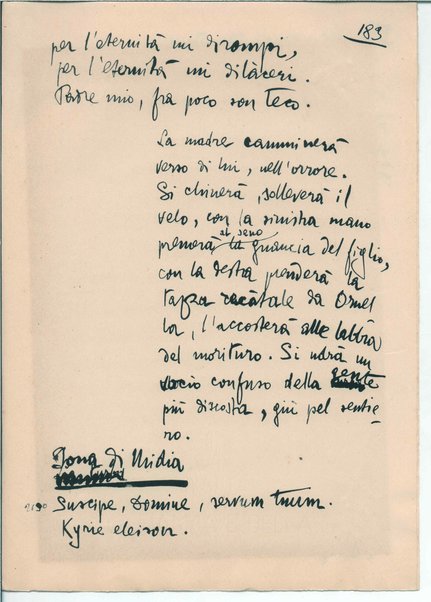 183
per l'eternità mi dirompi,
per l'eternità mi dilàceri.
Padre mio, fra poco son teco.
La madre camminerà
verso di lui, nell'orrore.
Si chinerà, solleverà il
velo, con la sinistra mano
premerà al seno la guancia del figlio,
con la destra prenderà la
tazza recàtale da Ornel
la, l'accosterà alle labbra
del morituro. Si udrà un
vocìo confuso della gente
più discosta, giù pel sentie-
ro.
Iona di Midia
Suscipe, Domine, servum tuum.
Kyrie eleison.